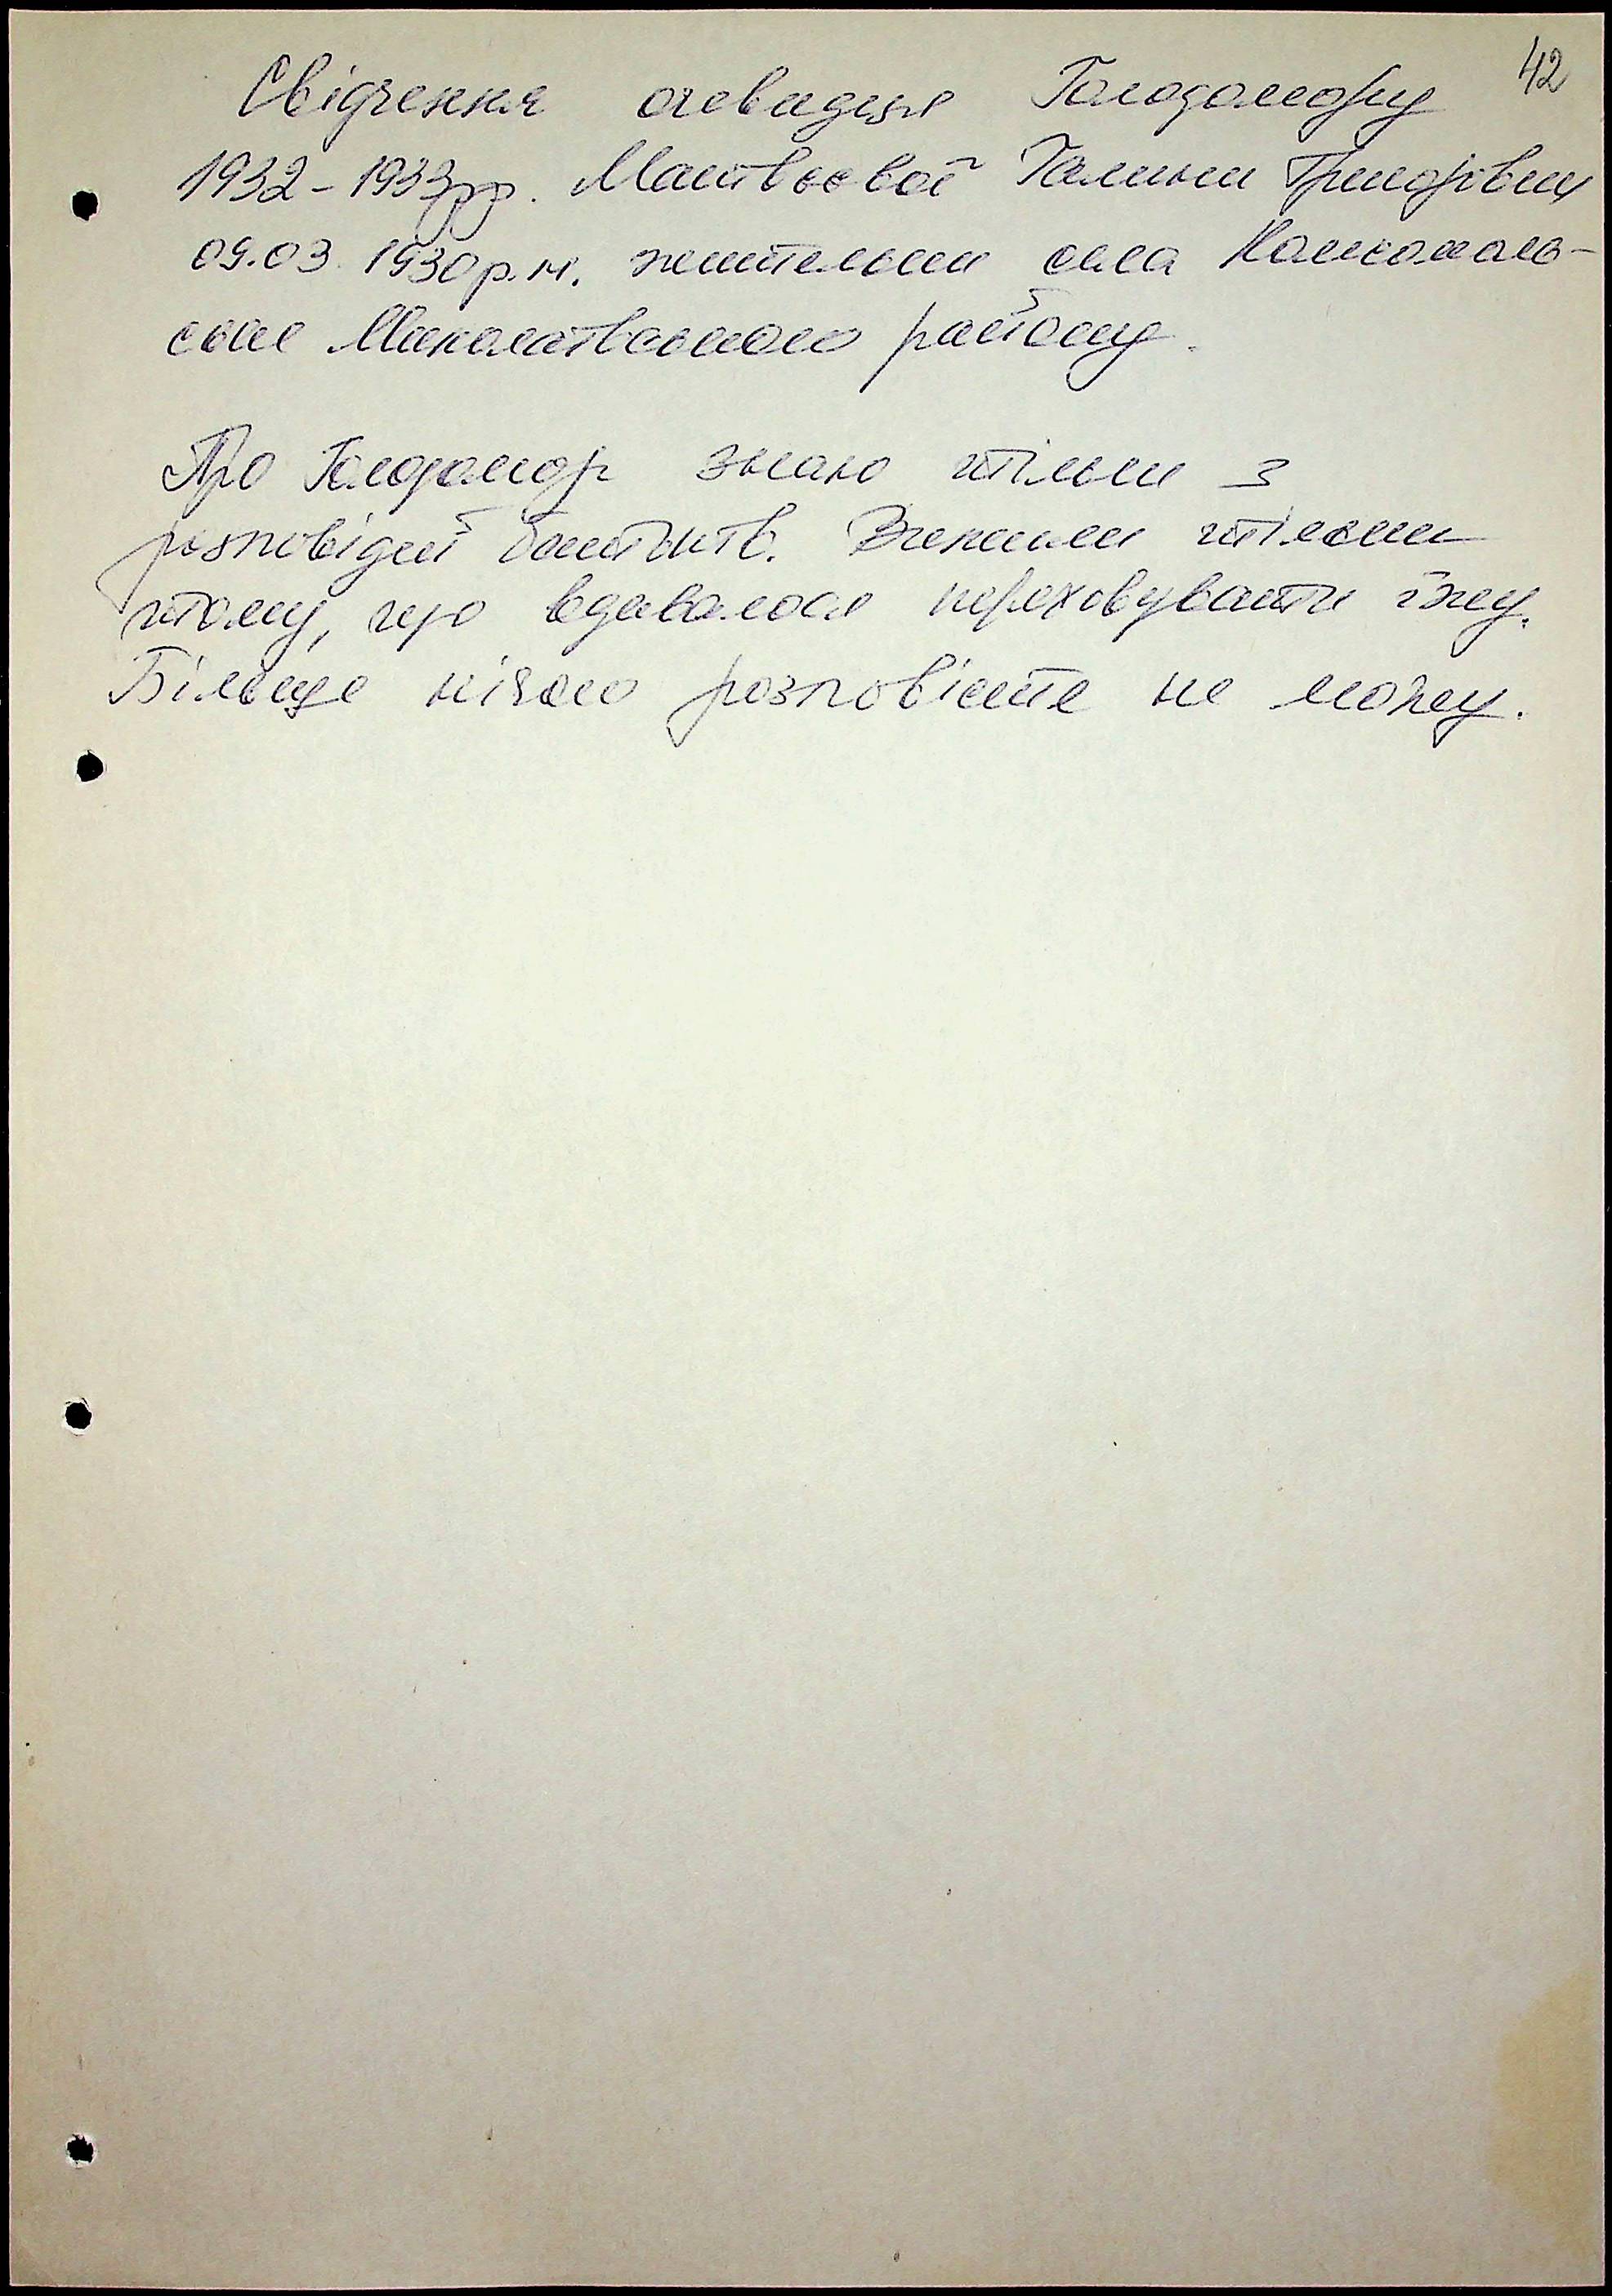 42
Свідчення очевидця Голодомору
1932-1933рр. Матвєєвої Галини Григорівни
09.03.1930р.н. жительки села
Миколаївського району.
Про Голодомор знаю тільки з
розповідей батьків. Вижили тільки
тому, що вдавалося переховувати їжу.
Більше нічого розповісти не можу.